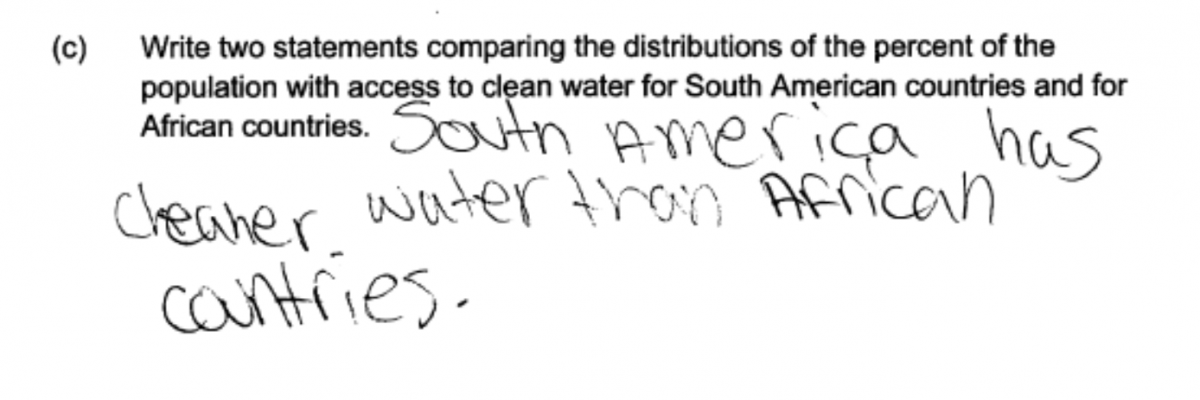 (c) Write two statements comparing the distributions of the percent of the
population with access to clean water for South American countries and for
African countries. South America has
cleaner water than African
countries.